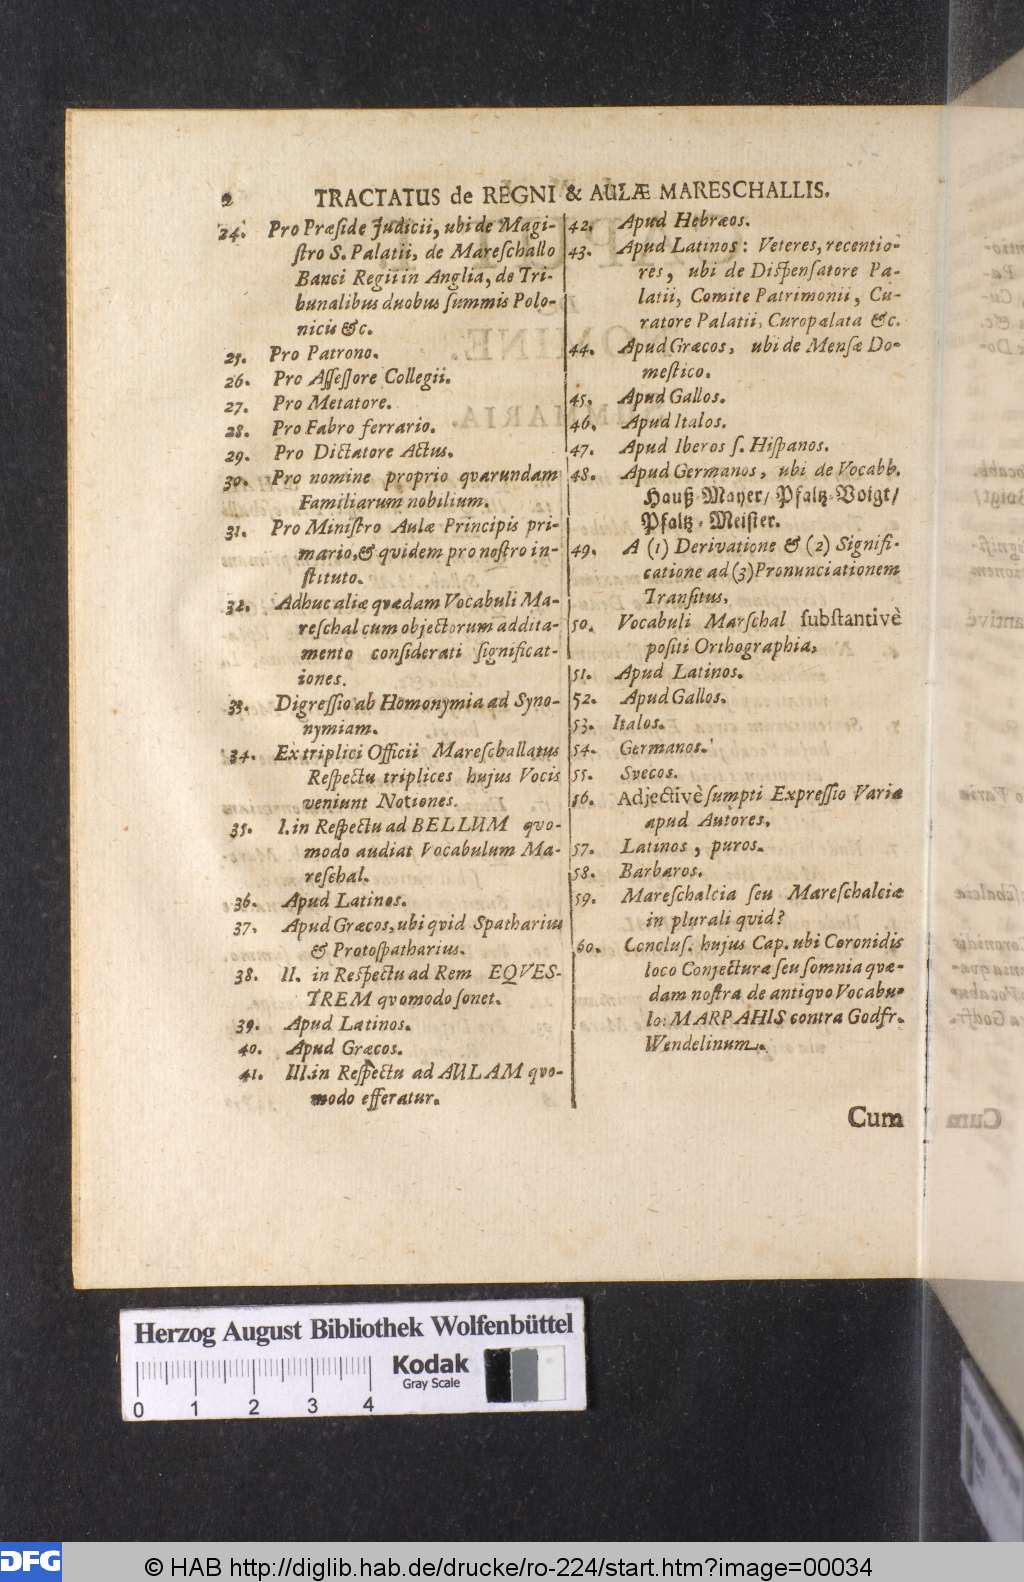 2 TRACTATUS de REGNI & AULÆ MARESCHALLIS.
24. Pro Præside Judicii, ubi de Magi-
stro S. Palatii, de Mareschallo
Banci Regii in Anglia, de Tri-
bunalibus duobus summis Polo-
nicis &c.
25. Pro Patrono.
26. Pro Assessore Collegii.
27. Pro Metatore.
28. Pro Fabro ferrario.
29. Pro Dictatore Actus.
30. Pro nomine proprio qvarundam
Familiarum nobilium.
31. Pro Ministro Aulæ Principis pri-
mario, & qvidem pro nostro in-
stituto.
32. Adhuc aliæ qvædam Vocabuli Ma-
reschal cum objectorum addita-
mento considerati significat-
iones.
33. Digressio ab Homonymia ad Syno-
nymiam.
34. Ex triplici Officii Mareschallatus
Respectu triplices hujus Vocis
veniunt Notiones.
35. I. in Respectu ad BELLUM qvo-
modo audiat Vocabulum Ma-
reschal.
36. Apud Latinos.
37. Apud Græcos, ubi qvid Spatharius
& Protospatharius.
38. II. in Respectu ad Rem EQVES-
TREM qvomodo sonet.
39. Apud Latinos.
40. Apud Græcos.
41. III. in Respectu ad AULAM qvo-
modo efferatur.
42. Apud Hebræos.
43. Apud Latinos: Veteres, recentio-
res, ubi de Dispensatore Pa-
latii, Comite Patrimonii, Cu-
ratore Palatii, Curopalata &c.
44. Apud Græcos, ubi de Mensæ Do-
mestico.
45. Apud Gallos.
46. Apud Italos.
47. Apud Iberos s. Hispanos.
48. Apud Germanos, ubi de Vocabb.
Hauß-Mayer/ Pfaltz-Voigt/
Pfaltz-Meister.
49. A (1) Derivatione & (2) Signifi-
catione ad (3) Pronunciationem
Transitus.
50. Vocabuli Marschal substantivè
positi Orthographia,
51. Apud Latinos.
52. Apud Gallos.
53. Italos.
54. Germanos.
55. Svecos.
56. Adjectivè sumpti Expressio Varia
apud Autores.
57. Latinos, puros.
58. Barbaros.
59. Mareschalcia seu Mareschalciæ
in plurali qvid?
60. Conclus. hujus Cap. ubi Coronidis
loco Conjecturæ seu somnia qvæ-
dam nostra de antiqvo Vocabu-
lo: MARPAHIS contra Godfr.
Wendelinum.
Cum
Herzog August Bibliothek Wolfenbüttel
Kodak
Gray Scale
0 1 2 3 4
DFG
© HAB http://diglib.hab.de/drucke/ro-224/start.htm?image=00034